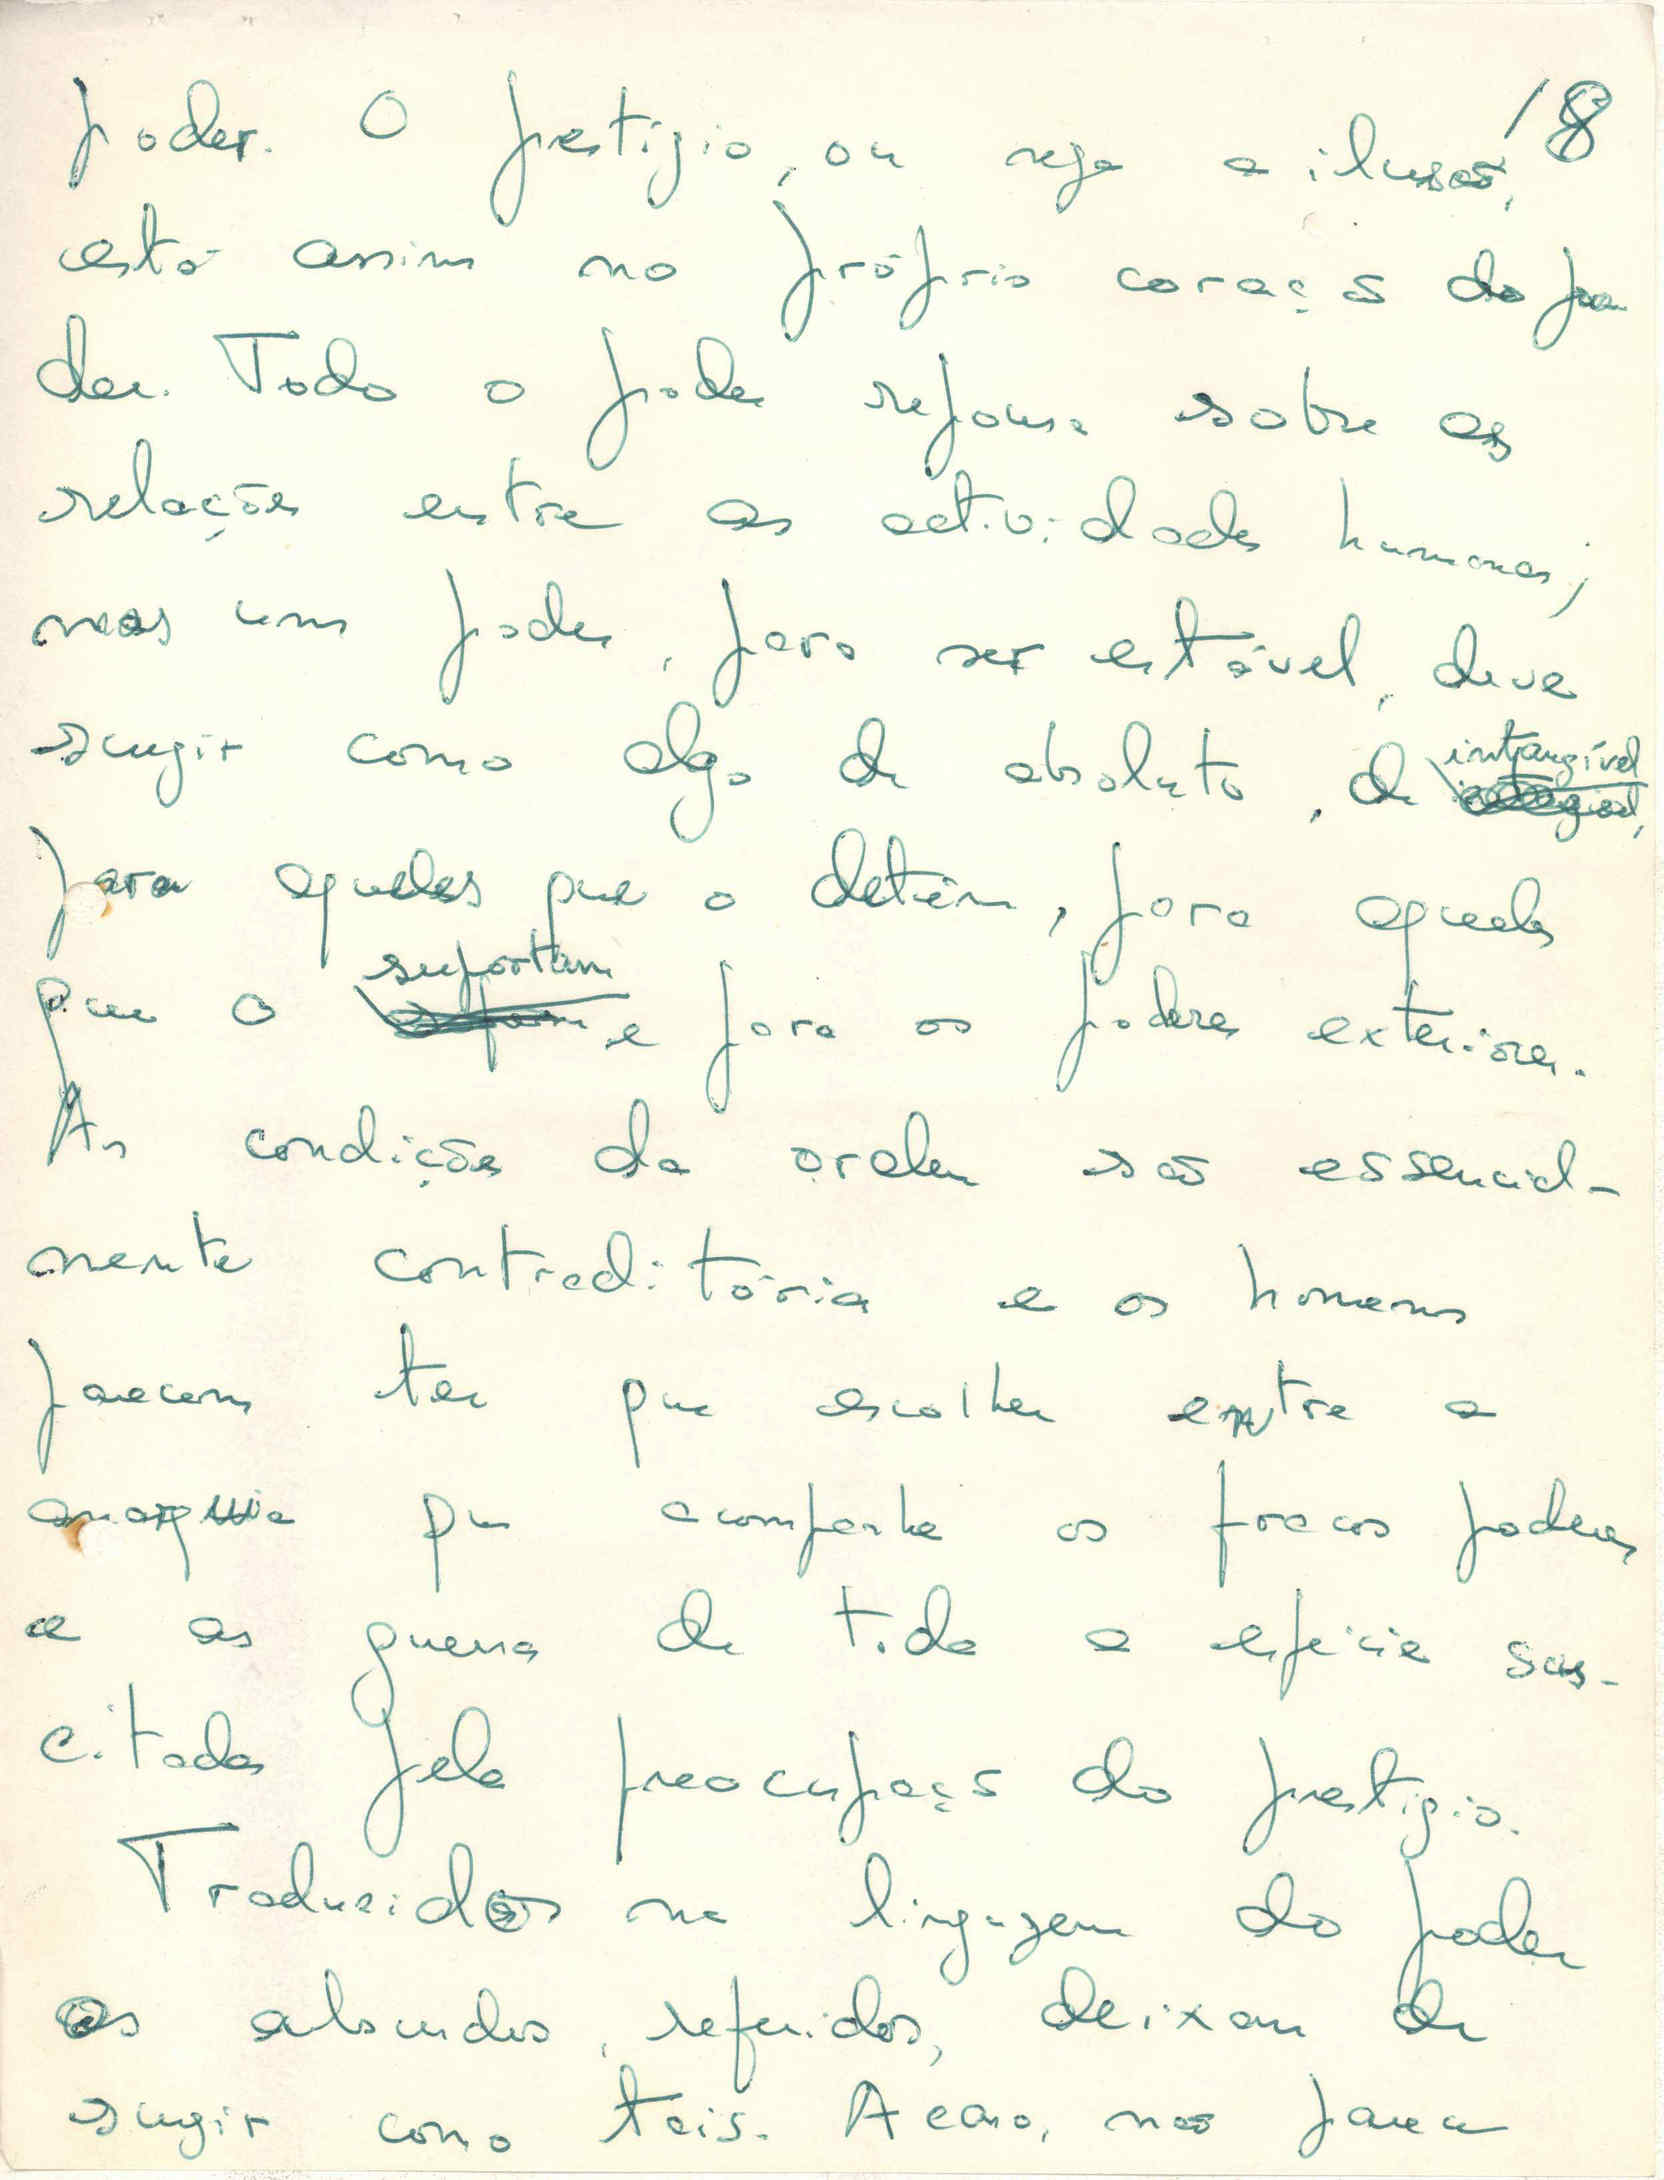 18
poder. O prestígio, ou seja a ilusão,
está assim no próprio coração do po
der. Todo o poder repousa sobre as
relações entre as actividades humanas;
mas um poder, para ser estável, deve
surgir como algo de absoluto, de intangível,
para aqueles que o detêm, para aqueles
que o suportam e para os poderes exteriores.
As condições da ordem são essencial-
mente contraditórias e os homens
parecem ter que escolher entre a
anarquia que acompanha os fracos poderes
e as guerras de toda a espécie sus-
citadas pela preocupação do prestígio.
Traduzidos na linguagem do poder
os absurdos, referidos, deixam de
surgir como tais. Acaso, não parece